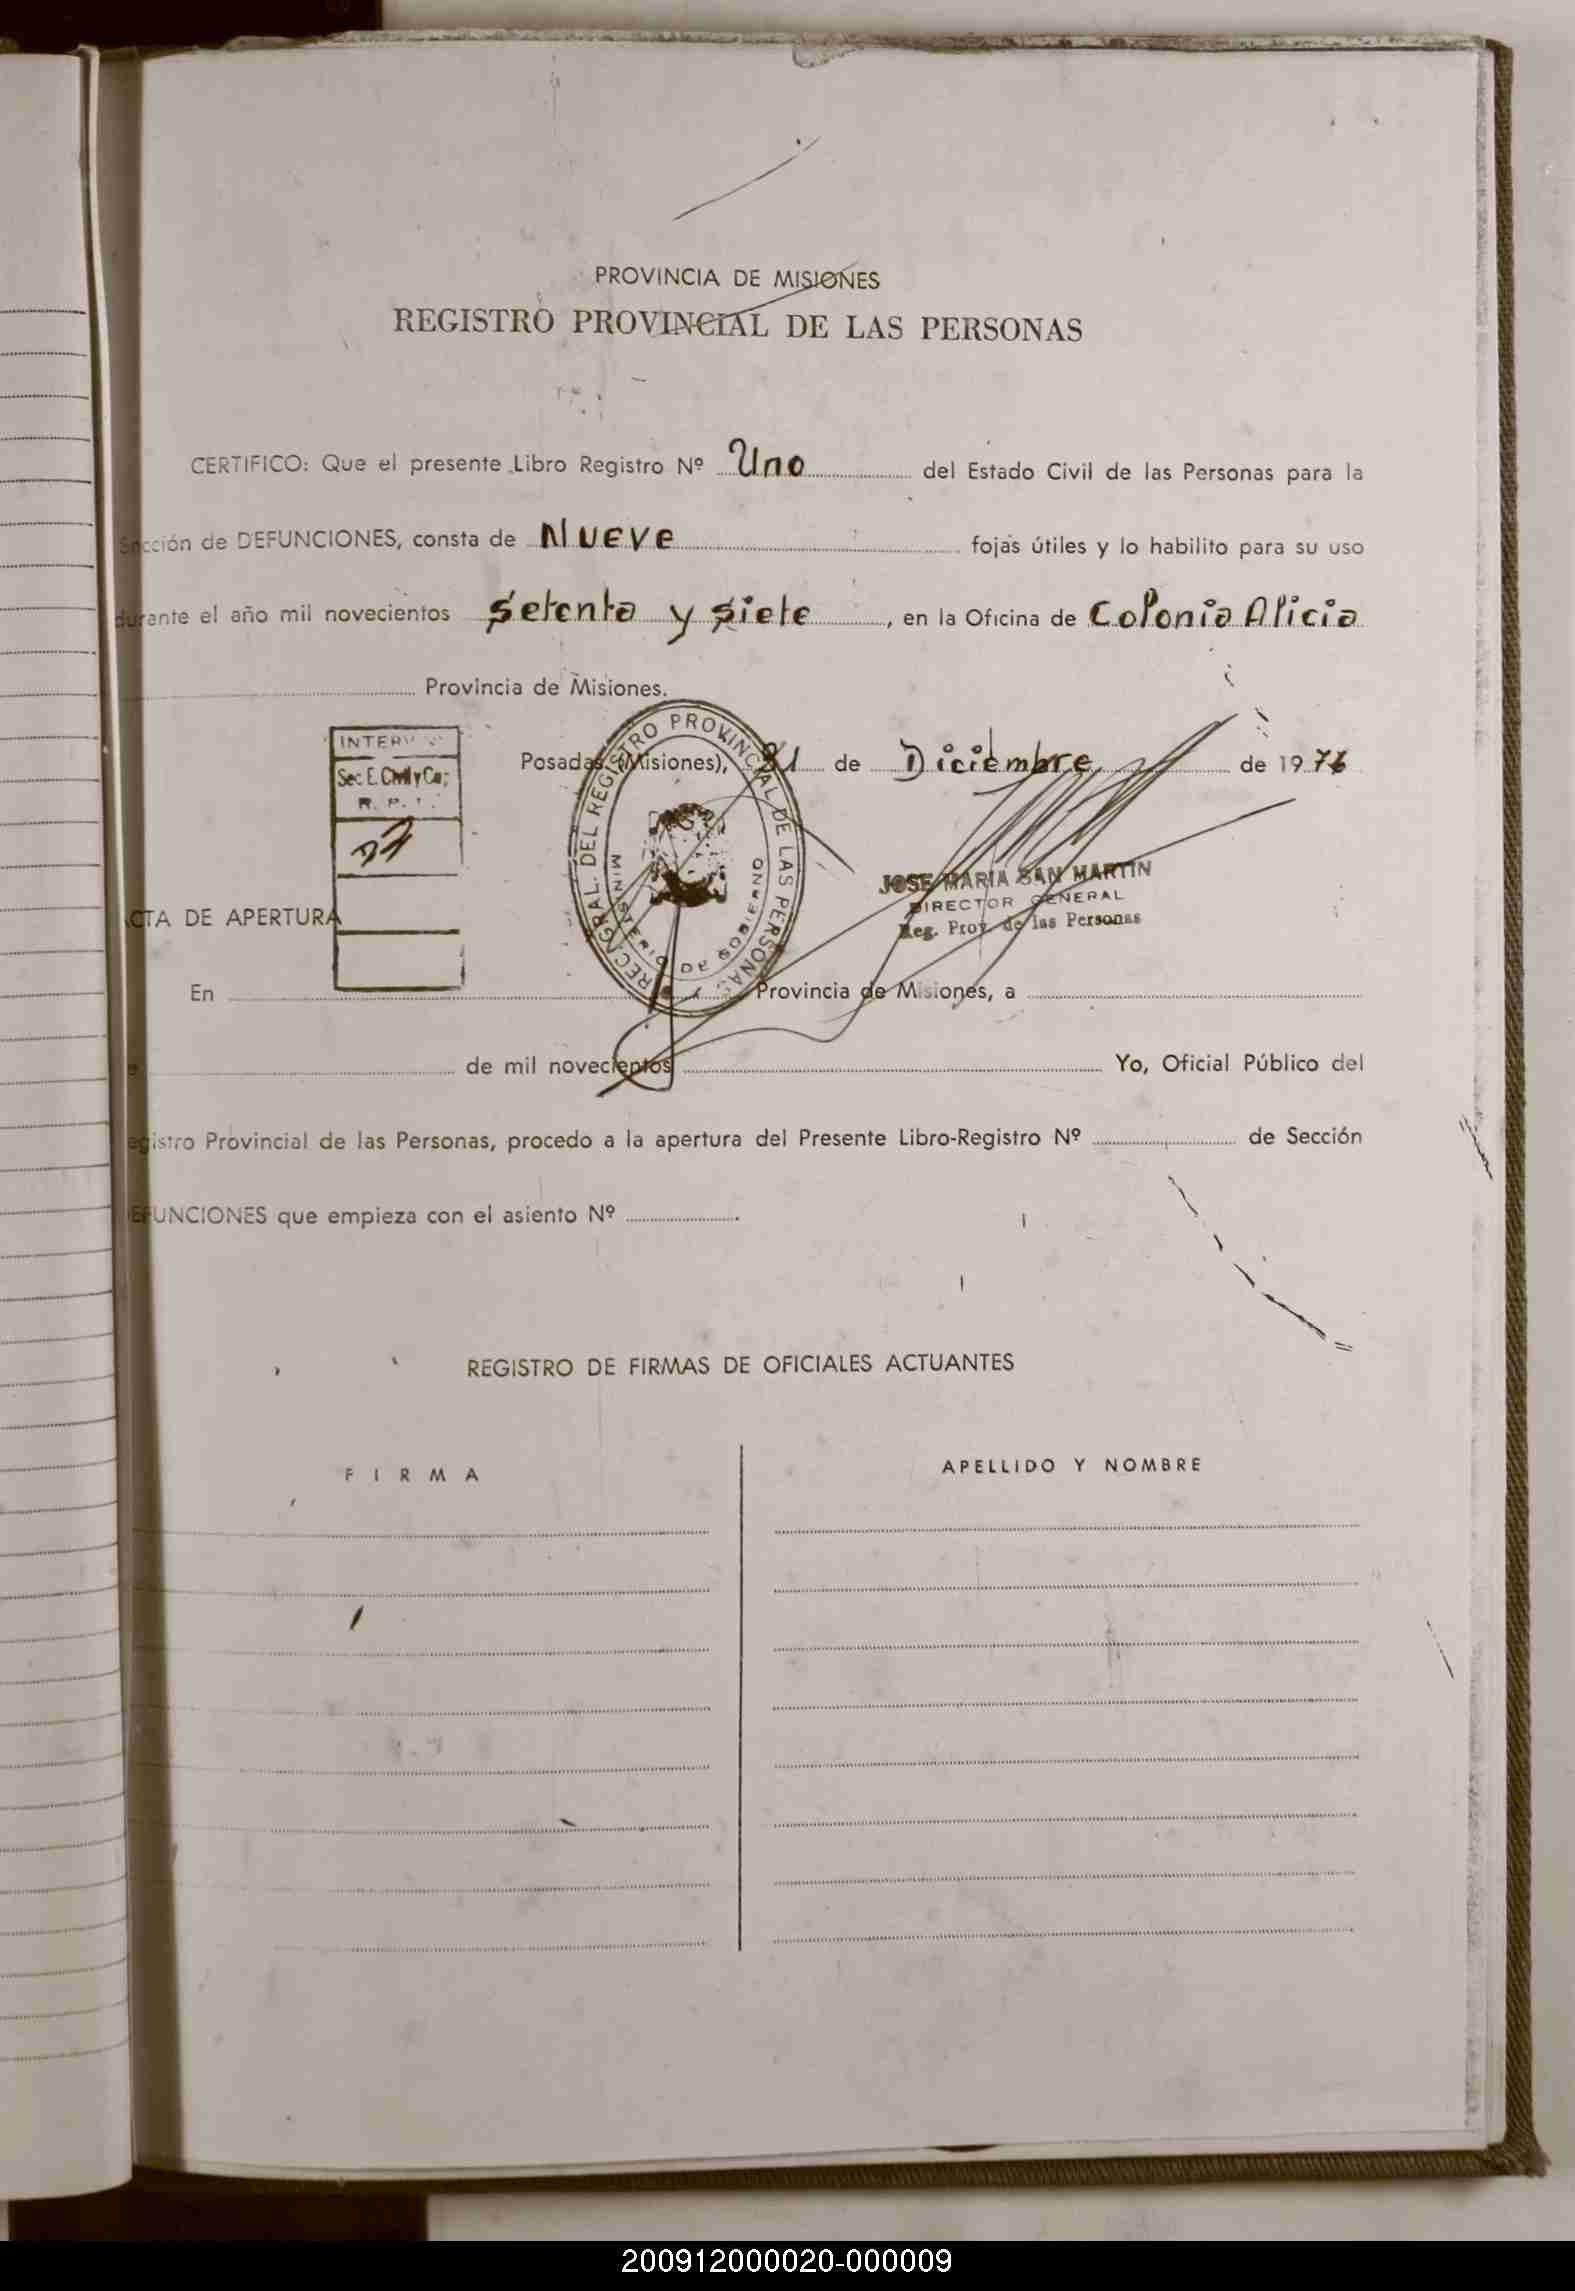 PROVINCIA DE MISIONES
REGISTRO PROVINCIAL DE LAS PERSONAS
CERTIFICO: Que el presente Libro Registro Nº Uno del Estado Civil de las Personas para la
Sección de DEFUNCIONES, consta de Nueve fojas útiles y lo habilito para su uso
durante el año mil novecientos Setenta y Siete, en la Oficina de Colonia Alicia
Provincia de Misiones.
Posadas, (Misiones), 31 de Diciembre de 1976
Sec. E. Civil y Cap
DIREC. GRAL. DEL REGISTRO PROVINCIAL DE LAS PERSONAS
MINISTERIO DE GOBIERNO
JOSE MARIA SAN MARTIN
DIRECTOR GENERAL
Reg. Prov. de las Personas
ACTA DE APERTURA
En Provincia de Misiones, a
de mil novecientos Yo, Oficial Público del
egistro Provincial de las Personas, procedo a la apertura del Presente Libro-Registro Nº de Sección
EFUNCIONES que empieza con el asiento Nº .
REGISTRO DE FIRMAS DE OFICIALES ACTUANTES
FIRMA APELLIDO Y NOMBRE
200912000020-000009